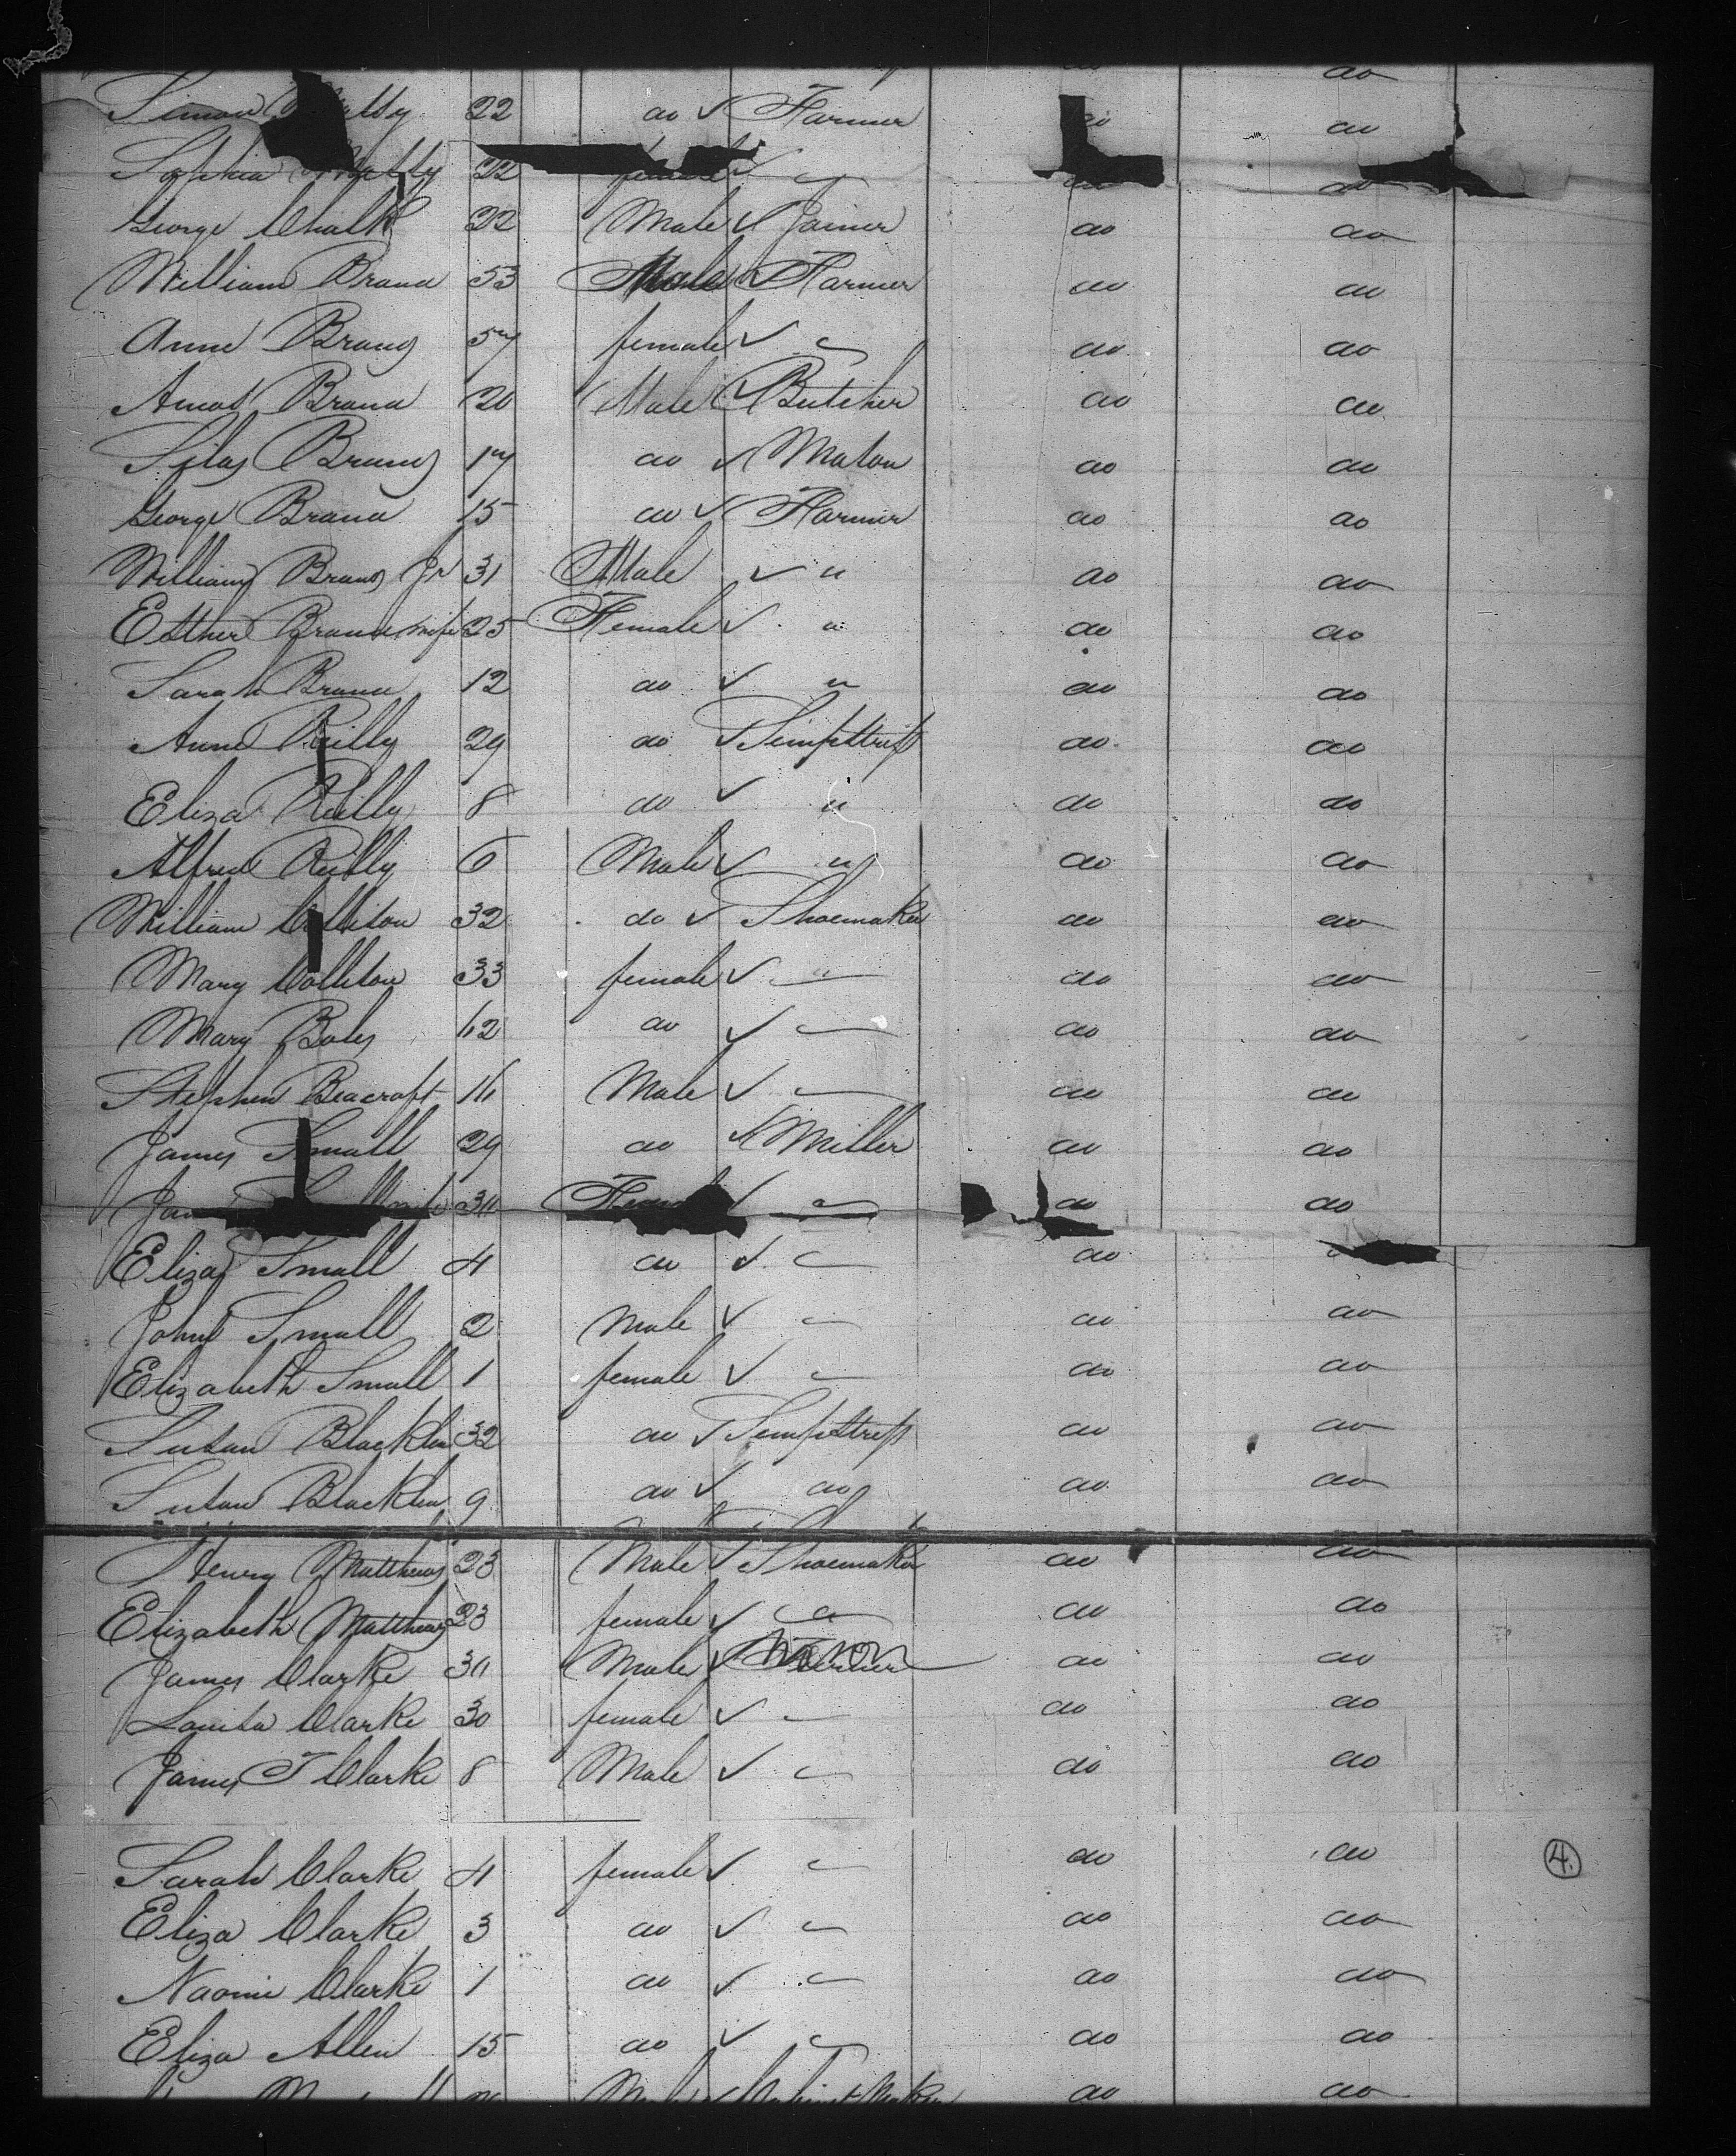 Simon 22 do ✓ Farmer do do
Sophia 22 female ✓ " do do
George Chalk 22 Male ✓ Joiner do do
William Brand 53 Male ✓ Farmer do do
Anne Brand 57 female ✓ " do do
Amos Brand 20 Male ✓ Butcher do do
Silas Brand 17 do ✓ Mason do do
George Brand 15 do ✓ Farmer do do
William Brand Jr 31 Male ✓ " do do
Esther Brand wife 25 Female ✓ " do do
Sarah Brand 12 do ✓ " do do
Anne Reilly 29 do ✓ Sempstress do do
Eliza Reilly 8 do ✓ " do do
Alfred Reilly 6 Male ✓ " do do
William Collison 32 do ✓ Shoemaker do do
Mary Collison 33 female ✓ " do do
Mary Boles 42 do ✓ " do do
Stephen Beacroft 14 Male ✓ " do do
James Small 29 do ✓ Miller do do
wife 34 ✓ " do do
Eliza Small 4 do ✓ " do do
John Small 2 Male ✓ " do do
Elizabeth Small 1 female ✓ " do do
Susan 32 do ✓ Sempstress do do
Susan 9 do ✓ do do do
Henry Matthews 23 Male ✓ Shoemaker do do
Elizabeth Matthews 23 female ✓ " do do
James Clarke 34 Male ✓ do do
Louisa Clarke 30 female ✓ " do do
James T Clarke 8 Male ✓ " do do
Sarah Clarke 4 female ✓ " do do
4.
Eliza Clarke 3 do ✓ " do do
Naomi Clarke 1 do ✓ " do do
Eliza Allen 15 do ✓ " do do
do do